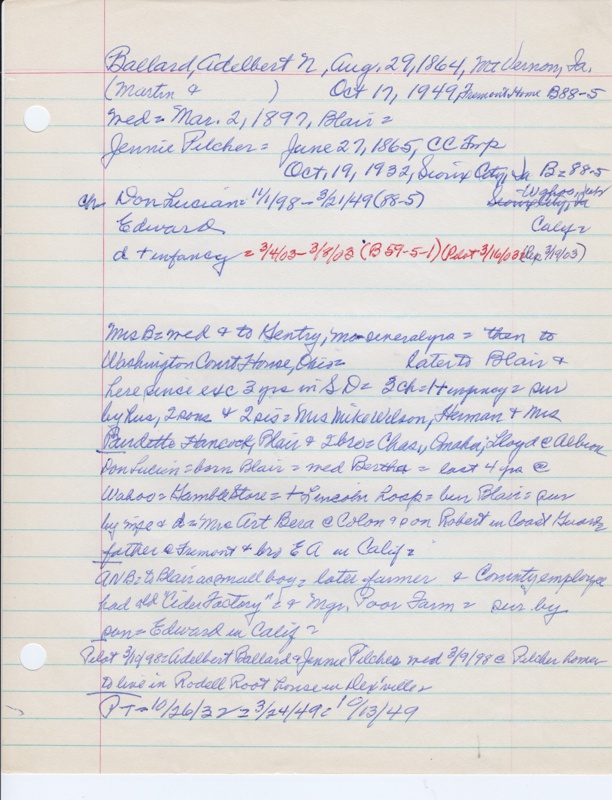 Ballard, Adelbert N, Aug. 29, 1864, Mt Vernon, Ia.
(Martin & ) Oct 17, 1949, Fremont Home B88-5
med = Mar. 2, 1897, Blair =
Jennie Pilcher = June 27, 1865, CC Imp
Oct, 19, 1932, Sioux City, Ia B = 88-5
ch Don Lucian = 11/1/98 - 3/21/49 (88-5) - Wahoo, Nebr
Edward Calif =
d + infancy = 3/4/03 - 3/8/03 (B 59-5-1) (Pilot 3/16/03) (Rep 3/19/03)
Mrs B = med & to Gentry, Mo = several yrs = then to
Washington Court House, Ohio = later to Blair &
here since exc 3 yrs in S D = 3 ch = 1 + infancy = sur
by hus, 2 sons & 2 sis = Mrs Mike Wilson, Herman & Mrs
Burdette Hancock, Blair & 2 bro = Chas., Omaha; Lloyd @ Albion
Don Lucien = born Blair = med Bertha = last 4 yrs @
Wahoo = Gamble Store = + Lincoln hosp = bur Blair = sur
by & d = Mrs Art Bera @ Colon & son Robert in Coast Guard,
father @ Fremont & bro E A in Calif =
ANB = to Blair as small boy = later farmer & County employee
had old "Cider Factory" & Mgr. Poor Farm = sur. by
son = Edward in Calif =
Pilot 3/10/98 = Adelbert Ballard & Jennie Pilcher med 3/9/98 @ Pilcher home
to live in Rodell Root house in Dex'ville
P T = 10/26/32 = 3/24/49 = 10/13/49